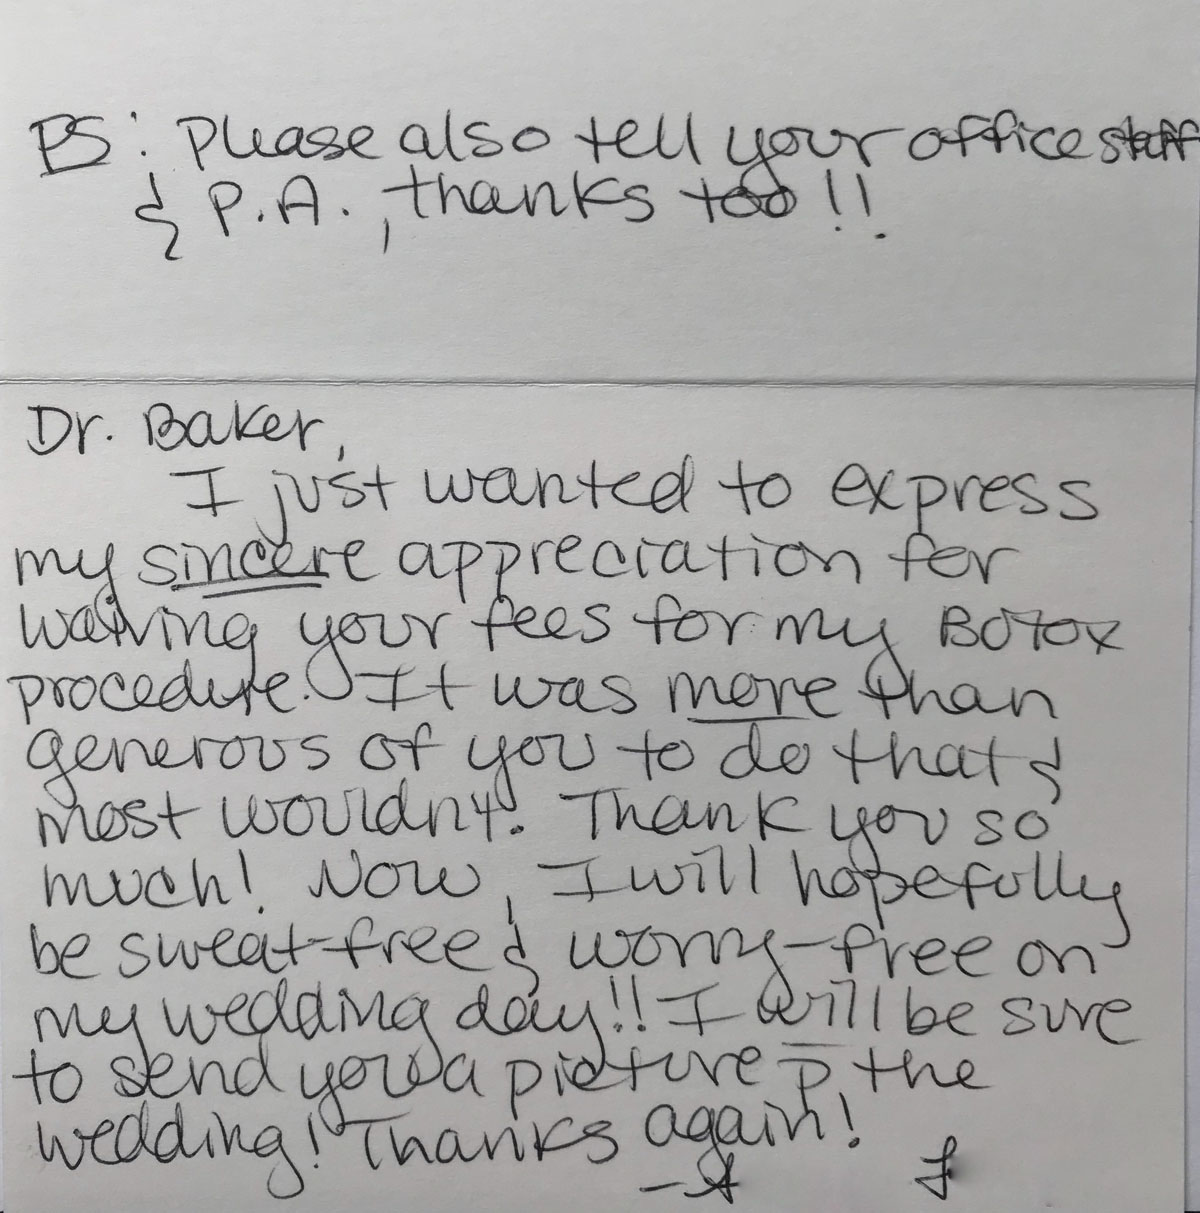 PS: Please also tell your office staff
& P.A., thanks too!!
Dr. Baker,
I just wanted to express
my sincere appreciation for
waiving your fees for my Botox
procedure. It was more than
generous of you to do that &
most wouldn't. Thank you so
much! Now, I will hopefully
be sweat-free & worry-free on
my wedding day!! I will be sure
to send you a picture p̄ the
wedding! Thanks again!